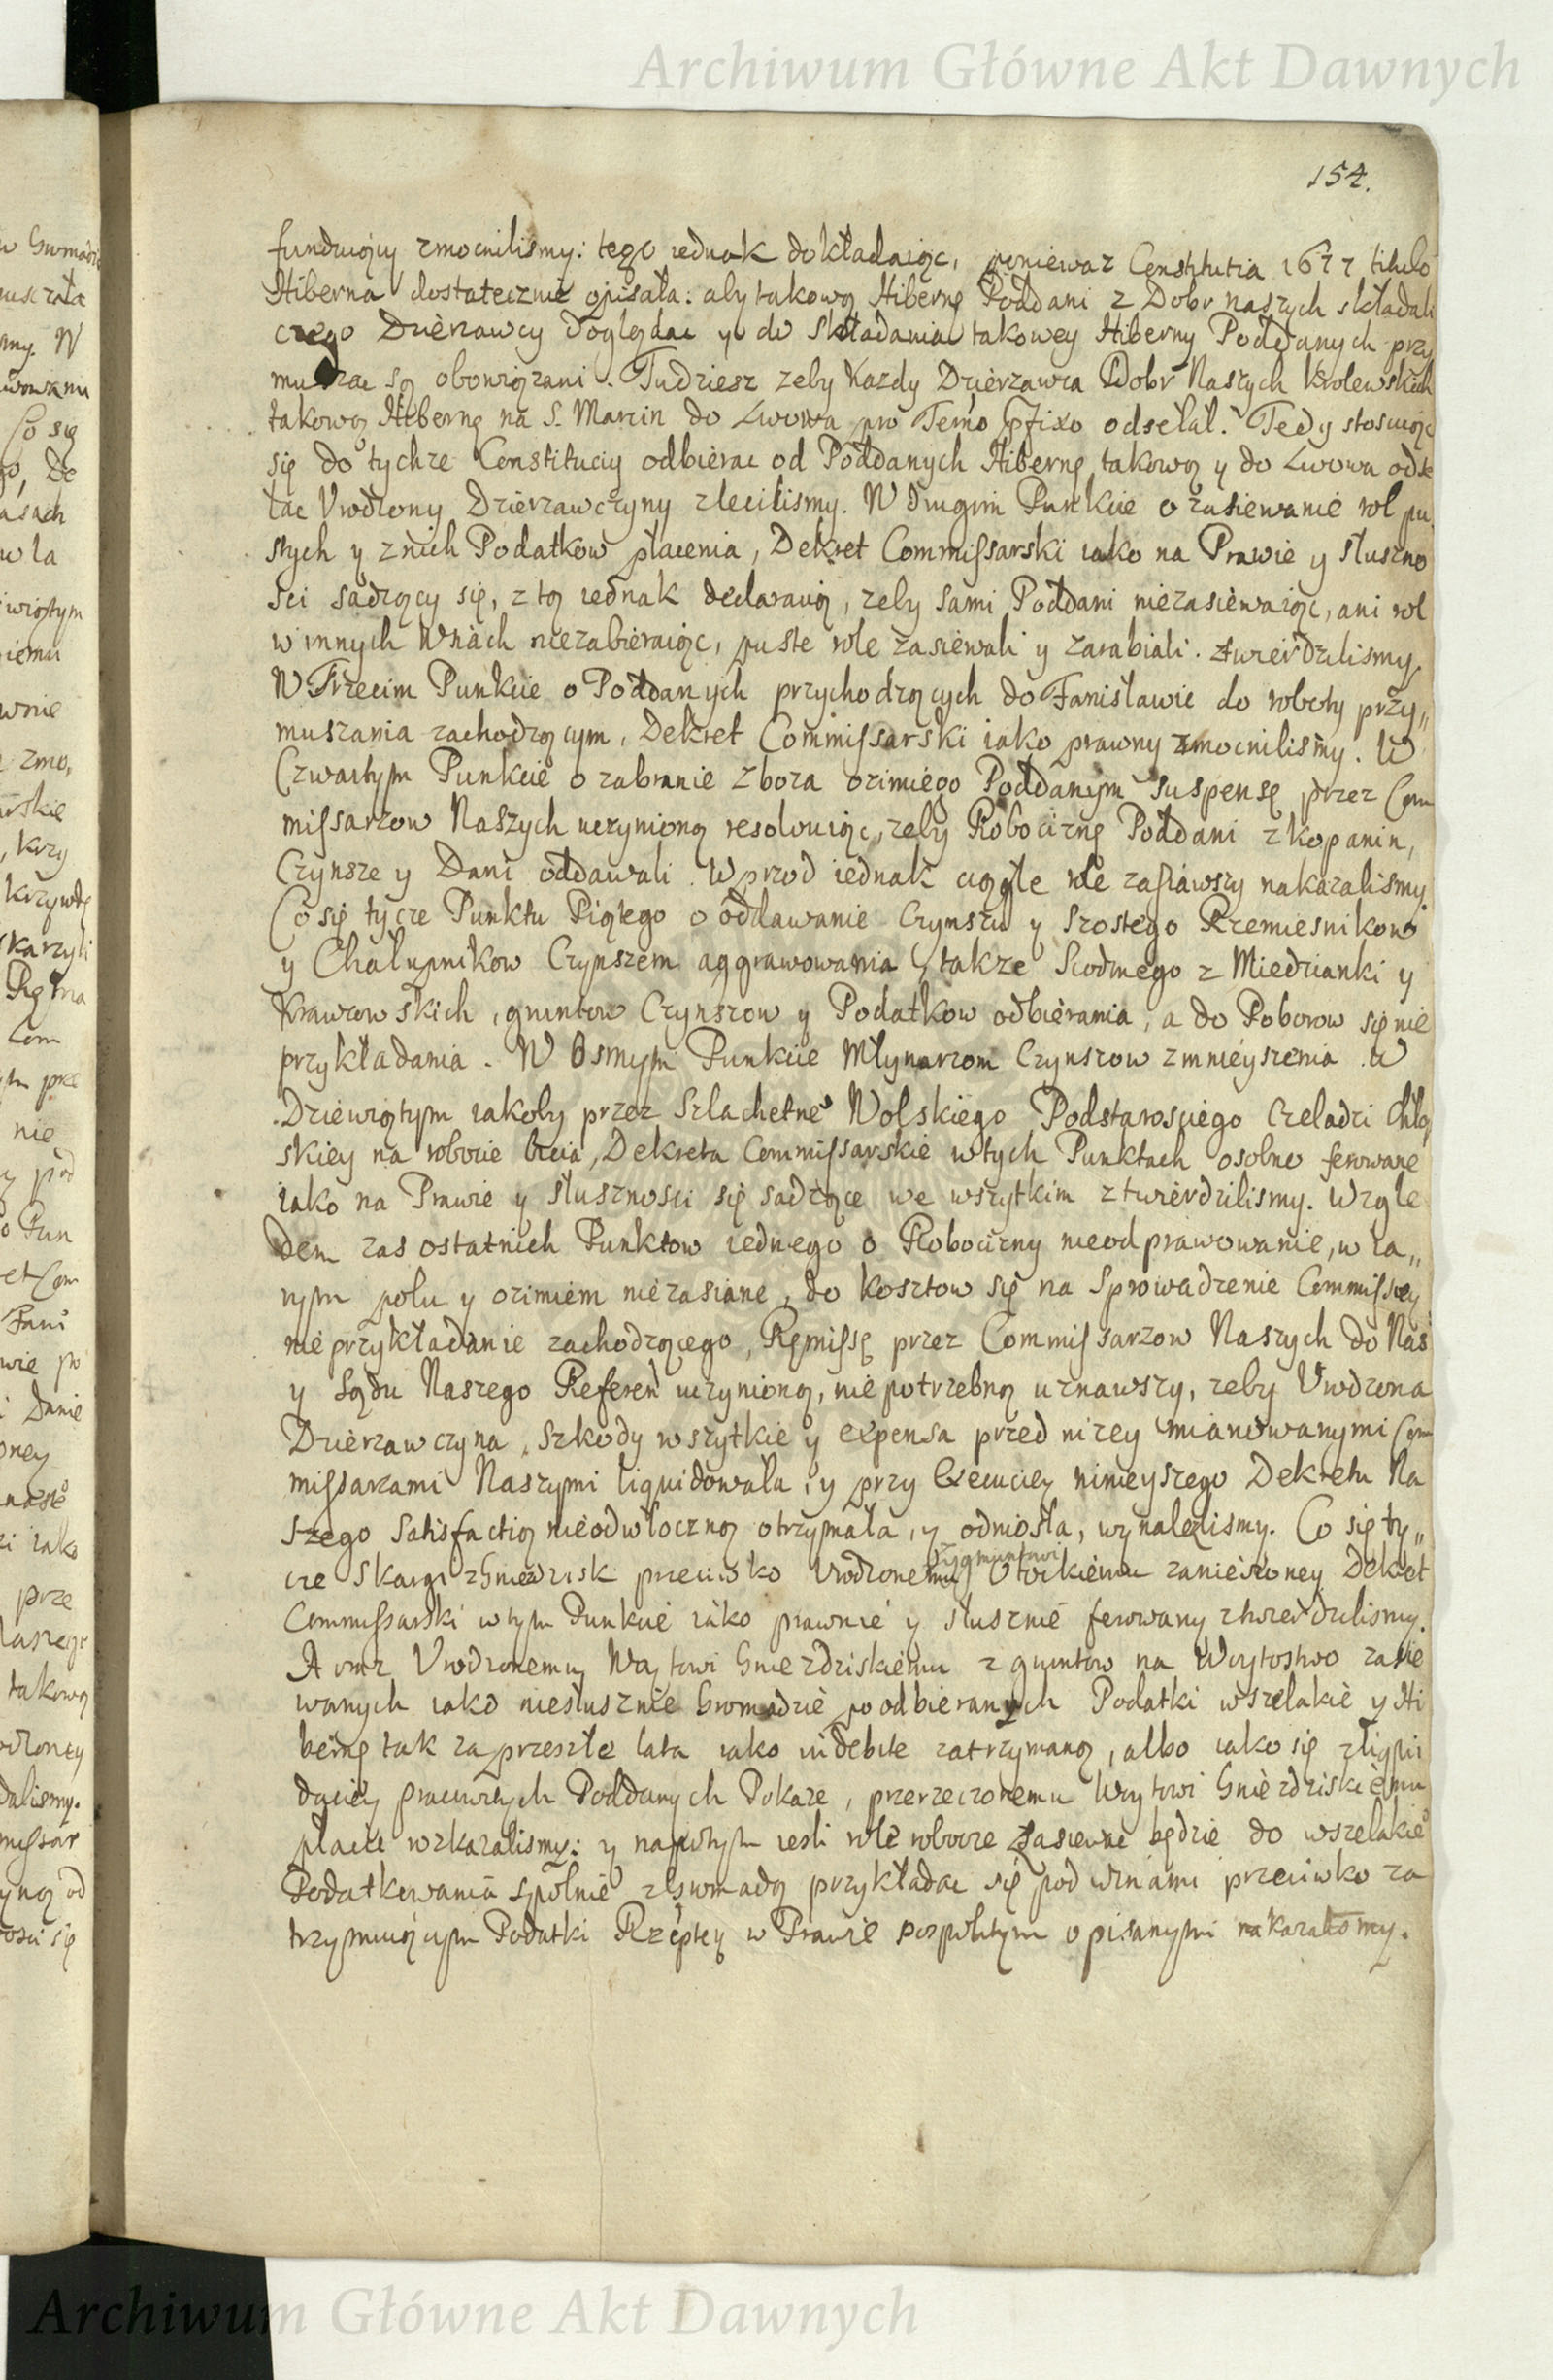 Archiwum Główne Akt Dawnych
154.
funduiący zmocnilismy: tego iednak dokładaiąc, poniewaz Constitutia 1677 titulo
Hiberna dostatecznie opisała: aby takową Hibernę Poddani z Dobr naszych składali
czego Dzierzawcy doglądac y do składania takowey Hiberny Poddanych przy
muszac są obowiązani. Tudziesz zeby Kazdy Dzierzawca Dobr Naszych Krolewskich
takową Hibernę na S. Marcin do Lwowa pro Termo pfixo odsełał. Tedy stosuiąc
się do tychze Constituciy odbierac od Poddanych Hibernę takową y do Lwowa odse
łac Urodzoney Dzierzawczyny zlecilismy. W drugim Punkcie o zasiewanie rol pu
stych y z nich Podatkow płacenia, Dekret Commissarski iako na Prawie y słuszno
sci sadzący się, z tą iednak declaracią, zeby sami Poddani niezasiewaiąc, ani rol
w innych Wsiach niezabieraiąc, puste role zasiewali y zarabiali. ztwierdzilismy.
W Trzecim Punkcie o Poddanych przychodzących do Fanisławic do roboty przy„
muszania zachodzącym, Dekret Commissarski iako prawny zmocnilismy. W
Czwartym Punkcie o zabranie Zboza ozimiego Poddanym suspensę przez Com
missarzow Naszych uczynioną resolvuiąc, zeby Robociznę Poddani z kopanin,
Czynsze y Dani oddawali. Wprzod iednak ciągłe role zasiawszy nakazalismy.
Co się tycze Punktu Piątego o oddawanie Czynszu y Szostego Rzemiesnikow
y Chałupnikow Czynszem aggrawowania, y takze Siodmego z Miedzianki y
Krawcowskich, gruntow Czynszow y Podatkow odbierania, a do Poborow się nie
przykładania. W Osmym Punkcie Młynarzom Czynszow zmnieyszenia. W
Dziewiątym iakoby przez Szlachetne° Wolskiego Podstarosciego Czeladzi Chło
skiey na robocie bicia, Dekreta Commissarskie w tych Punktach osobno ferowane
iako na Prawie y słusznosci się sadzące we wszytkim ztwierdzilismy. Wzglę
dem zas ostatnich Punktow iednego o Robocizny nieodprawowanie, w ia„
rym polu y ozimiem niezasiane, do kosztow się na Sprowadzenie Commissiey
nie przykładanie zachodzącego, Remissę przez Commissarzow Naszych do Nas
y Sądu Naszego Referen uczynioną, niepotrzebną uznawszy, zeby Urodzona
Dzierzawczyna, Szkody wszytkie y expensa przed nizey mianowanymi Com
missarzami Naszymi liquidowała, y przy Execuciey ninieyszego Dekretu Na
szego Satisfactią nieodwłoczną otrzymała, y odniosła, wynalezlismy. Co się ty„
cze Skargi z Gniezdzisk przeciwko Urodzonemu Zygmuntowi Otockiemu zaniesioney Dekret
Commissarski w tym Punkcie iako prawnie y słusznie ferowany ztwierdzilismy.
A oraz Urodzonemu Woytowi Gniezdziskiemu z gruntow na Woytostwo zasie
wanych iako niesłusznie Gromadzie poodbieranych Podatki wszelakie y Hi
bernę tak za przeszłe lata iako indebite zatrzymaną, albo iako się z liqui
daciey pracuiących Poddanych Pokaze, przerzeczonemu Woytowi Gniezdziskiemu
płacic wzkazalismy: y napotym iesli role robocze zasiewac będzie do wszelakie°
Podatkowania spolnie z Gromadą przykładac się pod winami przeciwko za
trzymuiącym Podatki Rzeptey w Prawie pospolitym opisanymi nakazalismy.
Archiwum Główne Akt Dawnych